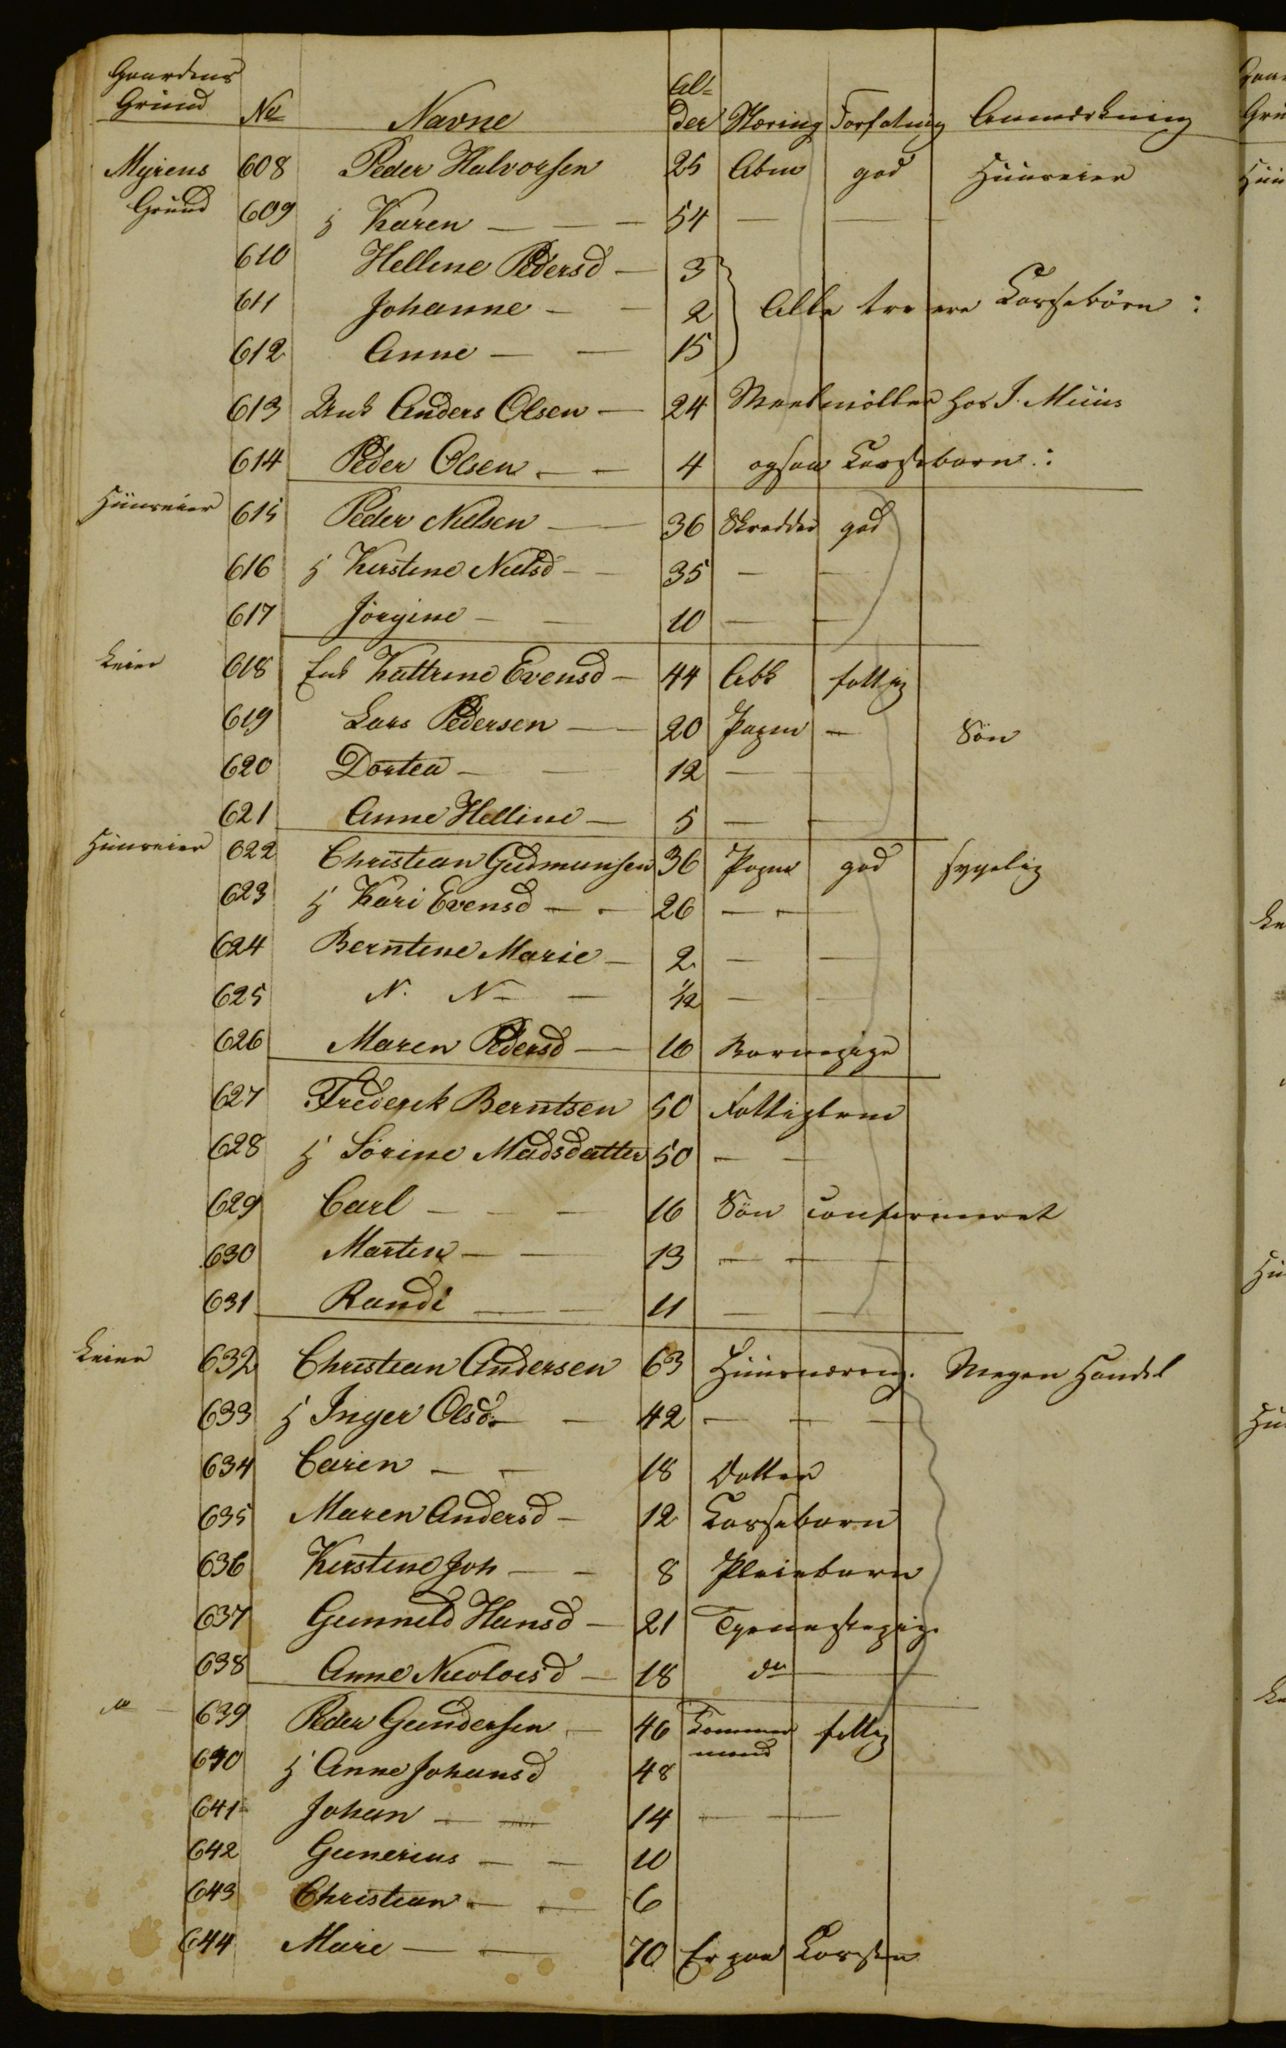 Gaardens Grund No Navne Al= der Næring Forfatning Anmærkning
Myrens 608 Peder Halvorsen 25 Abm god Huuseier
Grund 609 H Karen — — 54 — —
610 Hellene Pedersd — 3
611 Johanne — — 2 Alle tre ere Lassebörn :
612 Anne — — 15
613 Unk Anders Olsen — 24 hos J. Muus
614 Peder Olsen — — 4 ogsaa Lassebarn :
Huuseier 615 Peder Nielsen — 36 Skredder god
616 H Kirstine Nielsd — — 35 — —
617 Jörgine — — 10 — —
Leier 618 Enk Kattrine Evensd — 44 Abk fattig
619 Lars Pedersen — 20 — Sön
620 Dortea — — 12 —
621 Anne Helline — 5 — —
Huuseier 622 Christian Gudmunsen 36 god sygelig
623 H Kari Evensd — — 26 — —
624 Berntine Marie — 2 — —
625 N. N — — 1/2 — —
626 Maren Pedersd — 16 Barnepige
627 Frederik Berntsen 50 Fattiglem
628 H Sörine Madsdatter 50 — —
629 Carl — — — 16 Sön confirmeret
630 Marten — — 13 — — —
631 Randi — — 11 — —
Leier 632 Christian Andersen 63 Huusnæring. Megen Handel
633 H Inger Olsd — — 42 — — —
634 Caren — — 18 Datter
635 Maren Andersd — 12 Lassebarn
636 Kirstine Joh — — 8 Pleiebarn
637 Gunneld Hansd — 21 Tjenestepige
638 Anne Nicolaisd — 18 do —
do — 639 Peder Gundersen — 46 Tömmermand fattig
640 H Anne Johansd 48
641 Johan — — 14 — —
642 Gunerius — — 10
643 Christian — — 6
644 Mari — — 70 Er paa Lassen